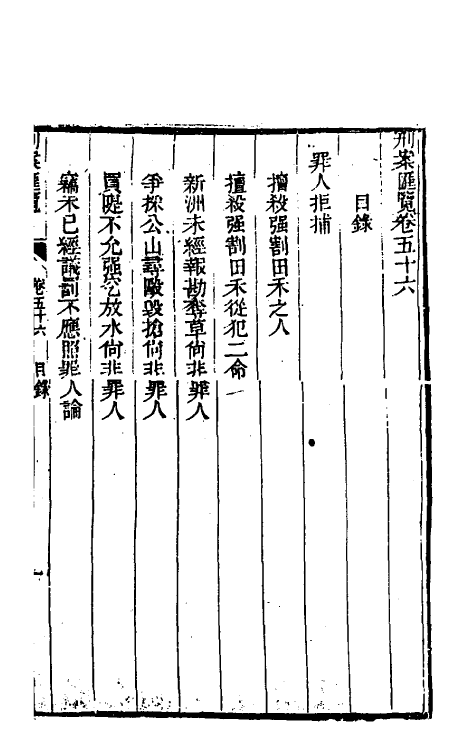 刑案匯覽卷五十六
目錄
罪人拒捕
擅殺强割田禾之人
擅殺强割田禾從犯二命
新洲未經報勘奪草尙非罪人
爭採公山尋毆毀搶尙非罪人
買隄不允强挖放水尙非罪人
竊禾已經議罰不應照罪人論
刑案匯覽 卷五十六 目錄 一